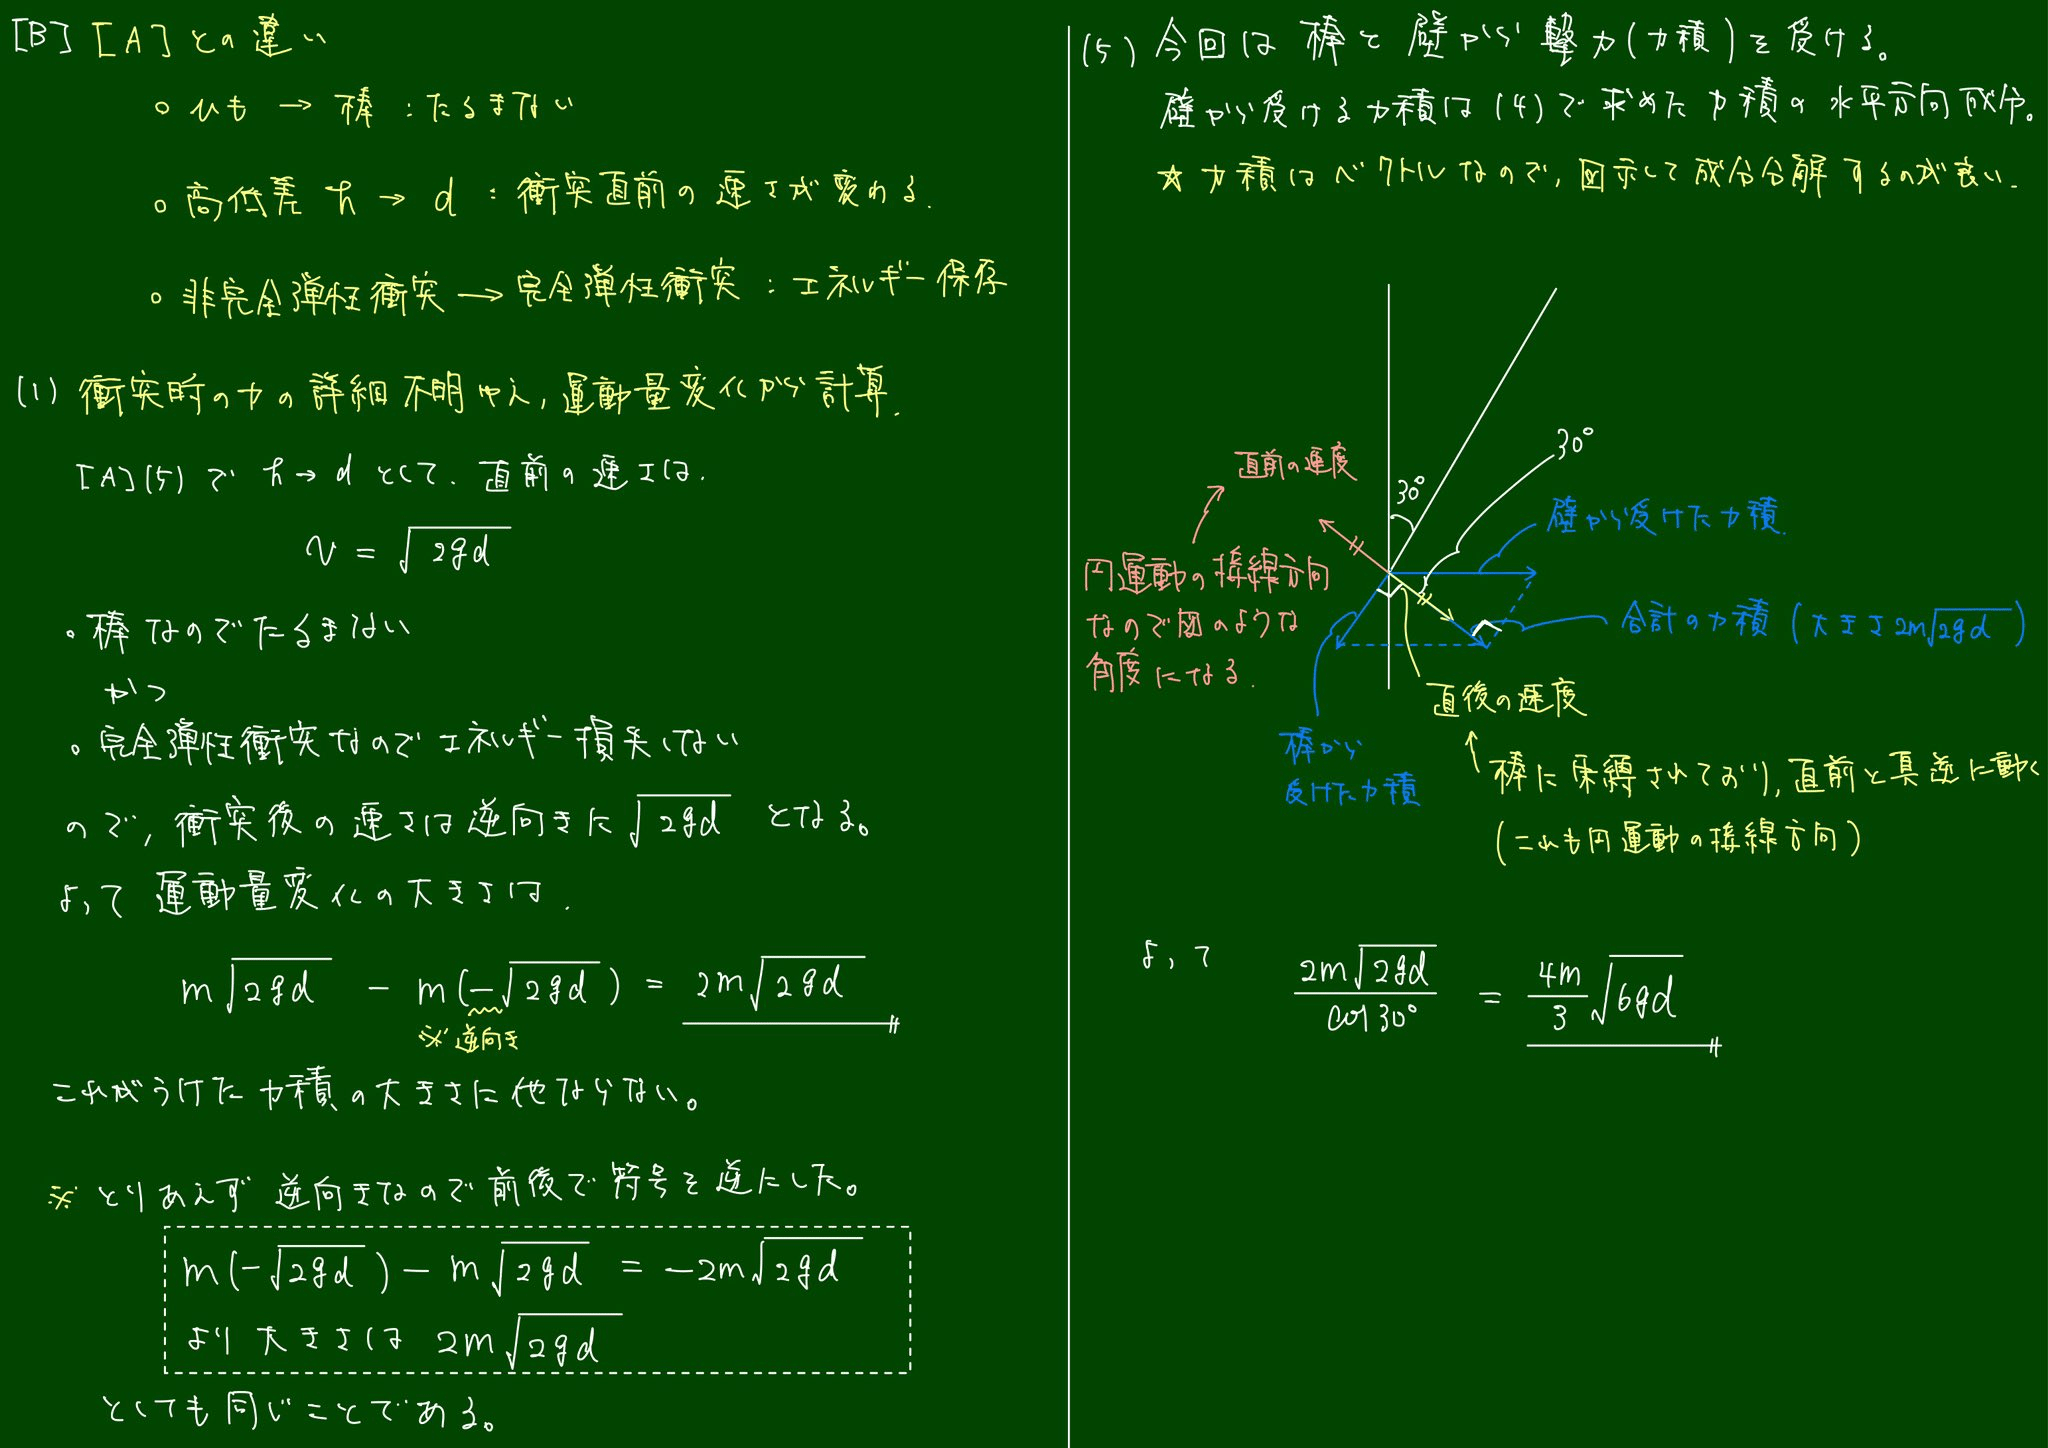 [B] [A]との違い
○ ひも → 棒 : たるまない
○ 高低差 h → d : 衝突直前の速さが変わる.
○ 非完全弾性衝突 → 完全弾性衝突 : エネルギー保存
(1) 衝突時の力の詳細不明ゆえ, 運動量変化から計算.
[A](5)で h→d として. 直前の速さは.
v = √2gd
○ 棒なのでたるまない
かつ
○ 完全弾性衝突なのでエネルギー損失してない
ので, 衝突後の速さは逆向きに √2gd となる。
よって 運動量変化の大きさは.
m√2gd - m(-√2gd) = 2m√2gd
※逆向き
これがうけた力積の大きさに他ならない。
※ とりあえず 逆向きなので前後で符号を逆にした。
m(-√2gd) - m√2gd = -2m√2gd
より 大きさは 2m√2gd
としても同じことである。
(5) 今回は 棒と壁から撃力(力積)を受ける。
壁から受ける力積は (4)で求めた力積の水平方向成分。
☆ 力積はベクトルなので, 図示して成分分解するのが良い.
30°
直前の速度
30°
壁から受けた力積.
円運動の接線方向
なので図のような
角度になる.
合計の力積 (大きさ2m√2gd)
直後の速度
棒から
受けた力積
棒に束縛されており, 直前と真逆に動く
(これも円運動の接線方向)
よって 2m√2gd / cos30° = 4m/3 √6gd